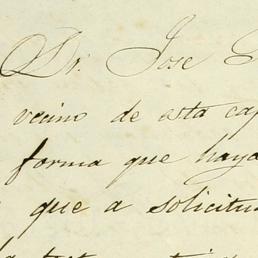 Dr. Jose
vecino de esta cap
forma que haya
que a solicitu